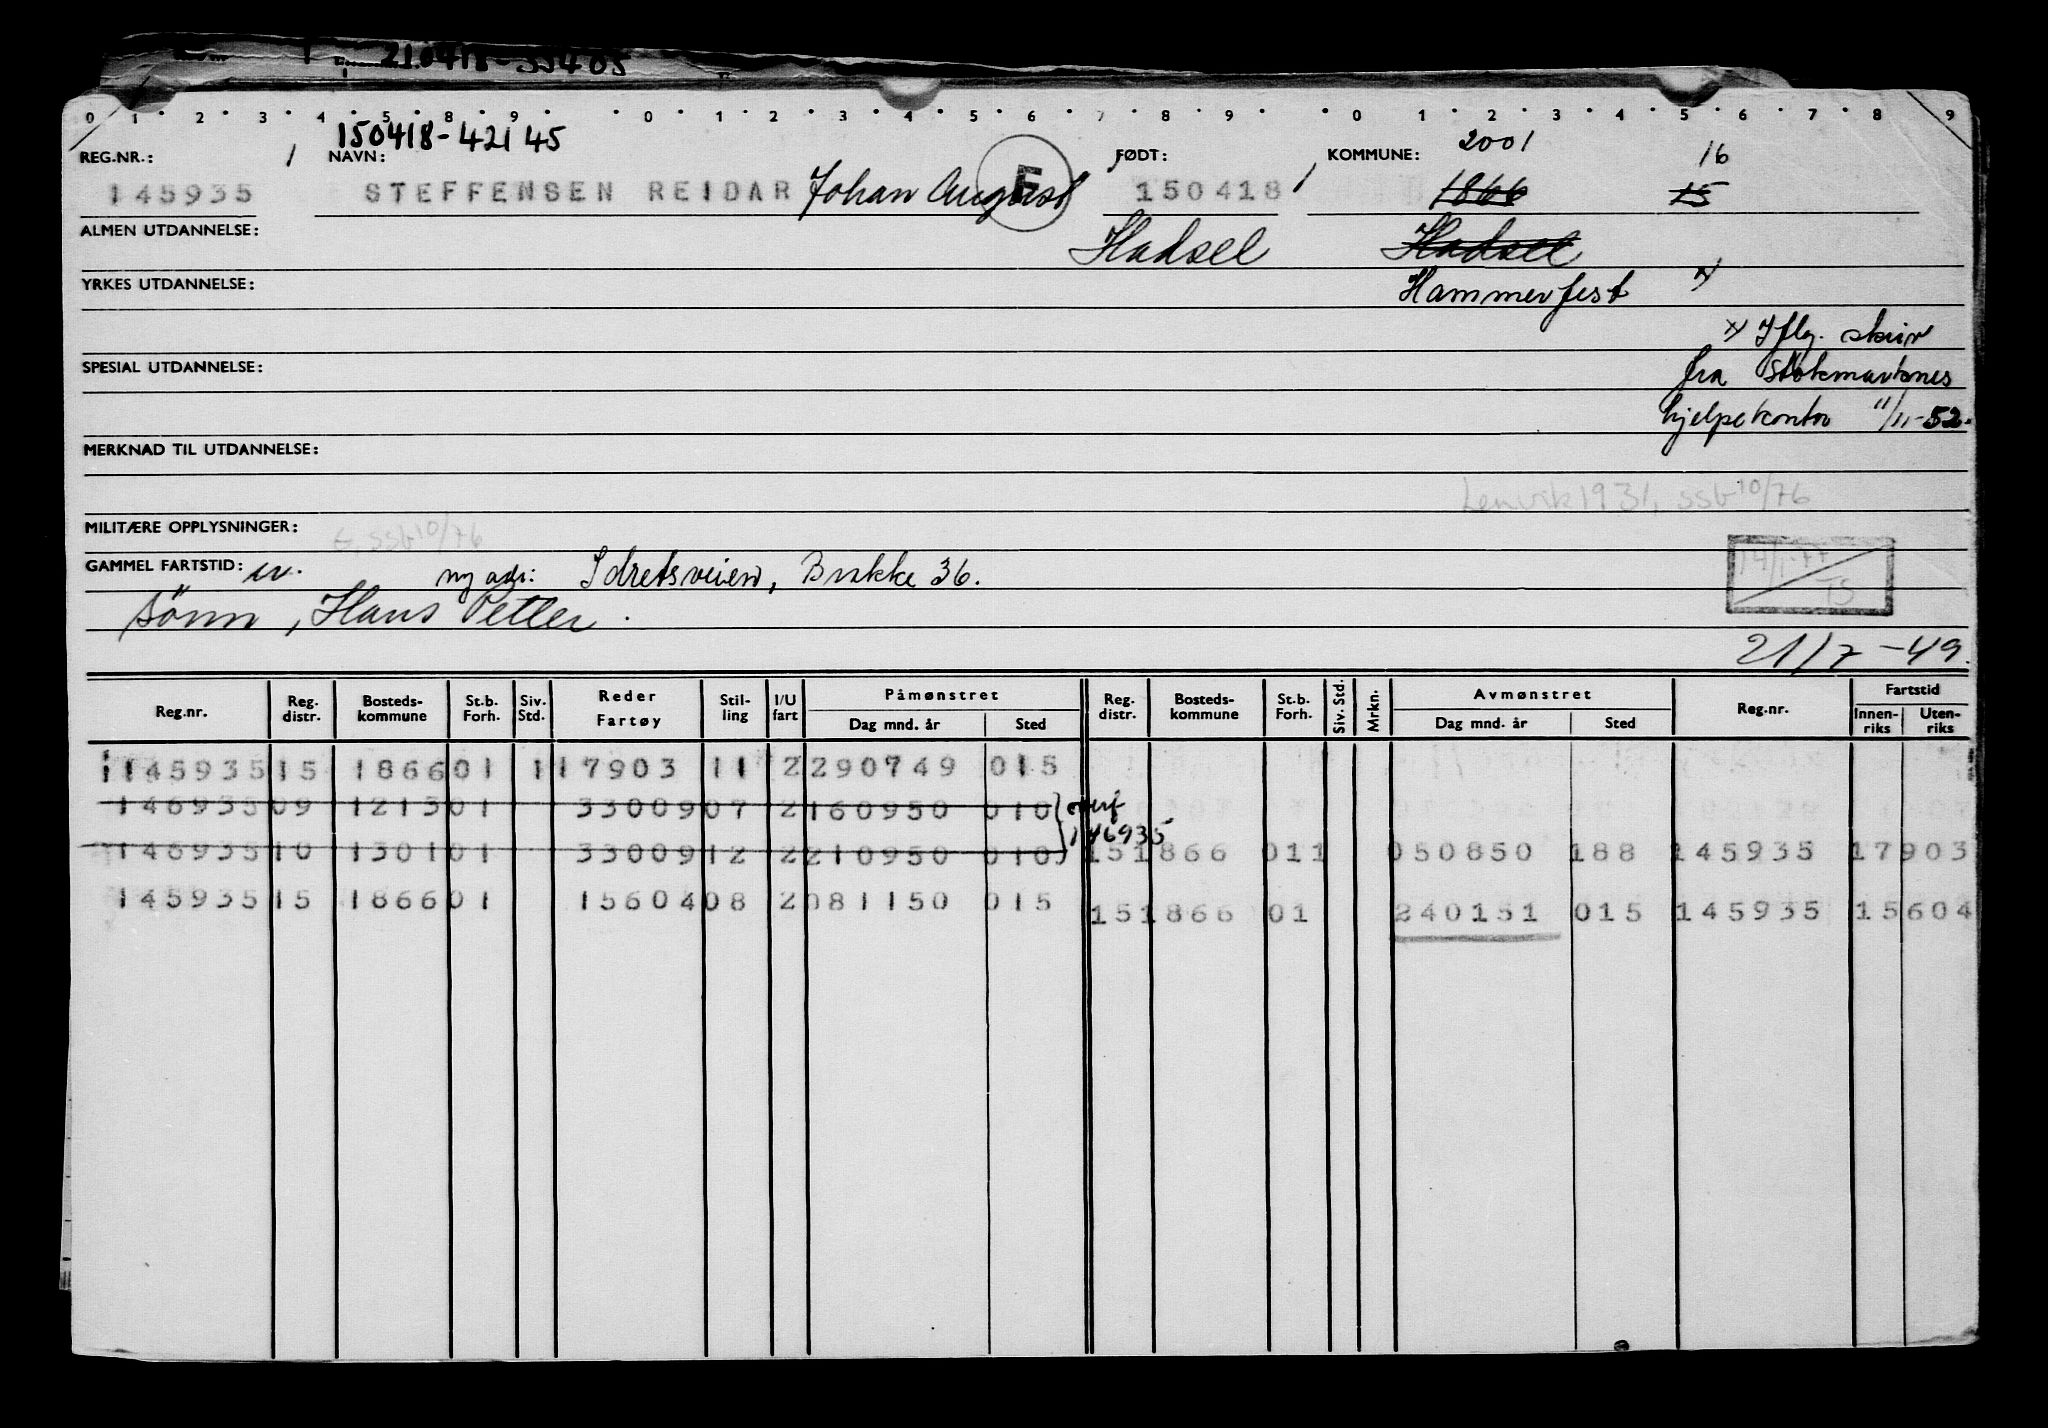 210418-33405
0 1 2 3 4 5 8 9 0 1 2 3 4 5 6 7 8 9 0 1 2 3 4 5 6 7 8 9
150418-42145 2001
REG.NR.: NAVN: FØDT: KOMMUNE: 16
145935 STEFFENSEN REIDAR Johan August E 150418 1866 15
ALMEN UTDANNELSE: Hadsel Hadsel
YRKES UTDANNELSE: Hammerfest x/
x/ Iflg. skriv
SPESIAL UTDANNELSE: fra Stokmarknes
hjelpekontor 11/11-52.
MERKNAD TIL UTDANNELSE:
Lenvik 1931, ssb 10/76
MILITÆRE OPPLYSNINGER: E, ssb 10/76
14/1-77
GAMMEL FARTSTID: ny adr: Idretsveien, Brakke 36.
TS
sønn, Hans Petter.
21/7-49.
Reg.nr. Reg. distr. Bosteds-kommune St.b. Forh. Siv. Std. Reder Fartøy Stil-ling I/U fart Påmønstret Dag mnd. år Sted Reg. distr. Bosteds-kommune St.b. Forh. Siv. Std. Mrkn. Avmønstret Dag mnd. år Sted Reg.nr. Fartstid Innen-riks Uten-riks
145935 15 1866 01 1 17903 11 2 290749 015
146935 09 1213 01 33009 07 2 160950 010 overf
146935
146935 10 1301 01 33009 12 2 210950 010 15 1866 01 1 050850 188 145935 17903
145935 15 1866 01 15604 08 2 081150 015 15 1866 01 240151 015 145935 15604